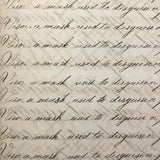 Visor a mask used to disguise n
Visor a mask used to disguise n
Visor a mask used to disguise n
Visor a mask used to disguise n
Visor a mask used to disguise n
Visor a mask used to disguise n
Visor a mask used to disguise n
Visor a mask used to disguise